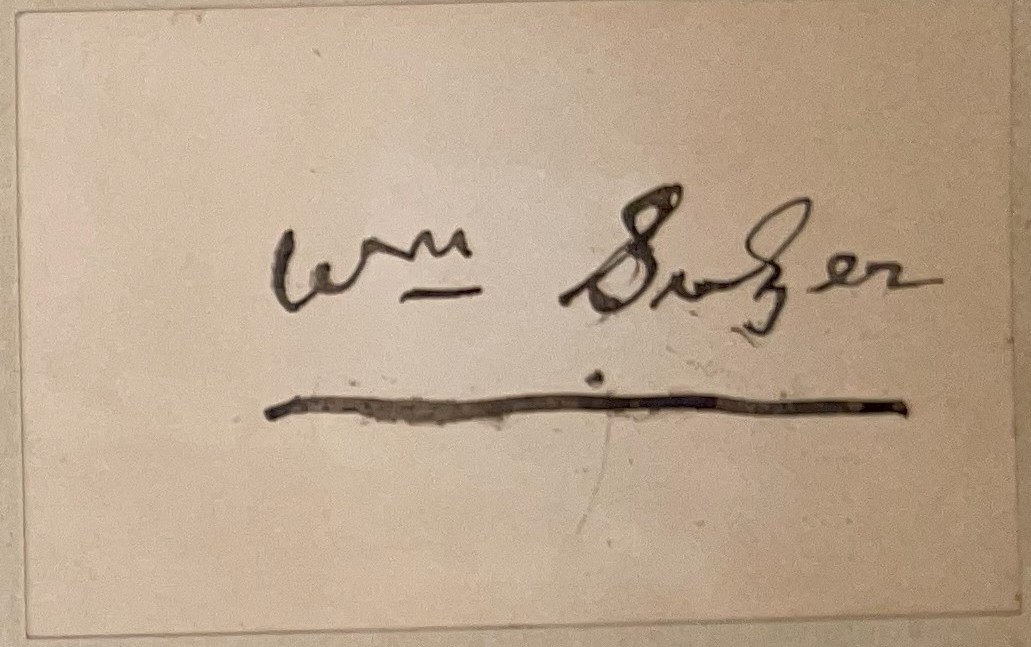 Wm Sulzer